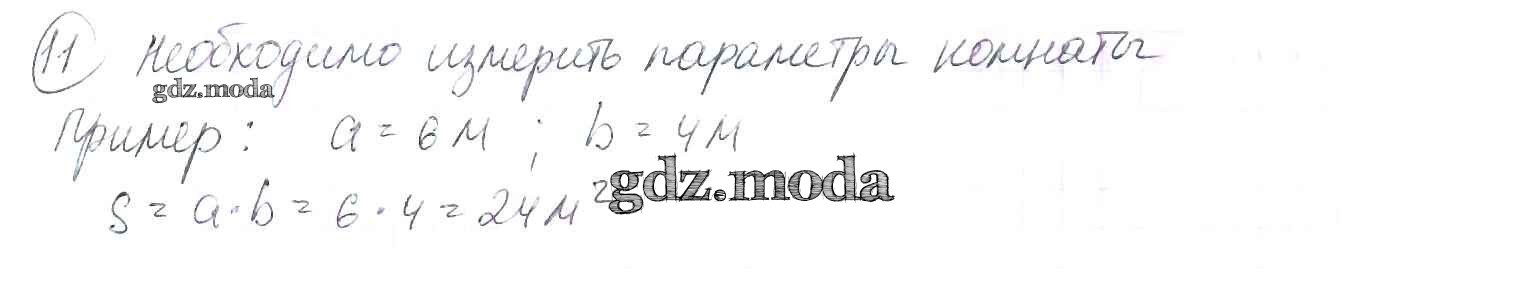 11 Необходимо измерить параметры комнаты
gdz.moda
Пример: a = 6м ; b = 4м
gdz.moda
S = a·b = 6·4 = 24м²